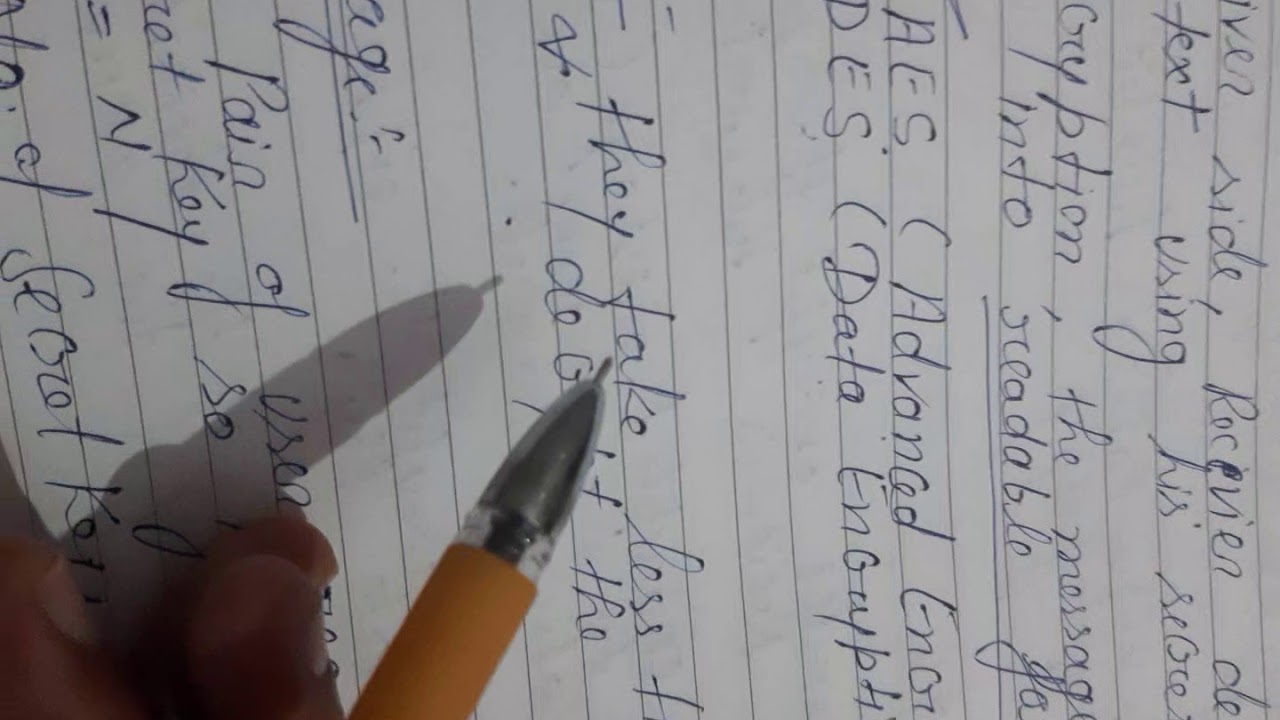 iver side, Reciever de
text using his secre
cryption, the message
into readable fo
AES ( Advanced Encr
DES ( Data Encrypti
- they take less t
& do it the
age :-
Pair of user
ret Key so
= N
of Secret Key